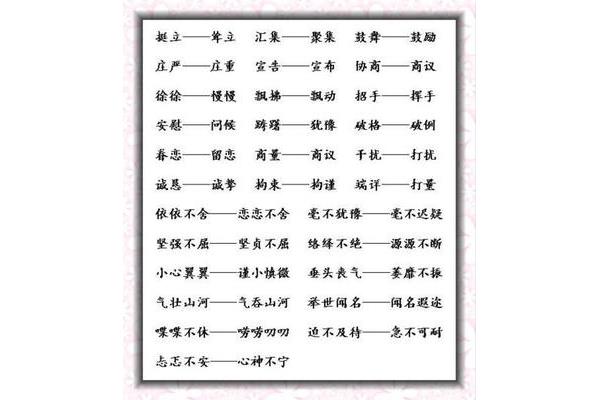 挺立——耸立 汇集——聚集 鼓舞——鼓励
庄严——庄重 宣告——宣布 协商——商议
徐徐——慢慢 飘拂——飘动 招手——挥手
安慰——问候 踌躇——犹豫 破格——破例
眷恋——留恋 商量——商议 干扰——打扰
诚恳——诚挚 拘束——拘谨 端详——打量
依依不舍——恋恋不舍 毫不犹豫——毫不迟疑
坚强不屈——坚贞不屈 络绎不绝——源源不断
小心翼翼——谨小慎微 垂头丧气——萎靡不振
气壮山河——气吞山河 举世闻名——闻名遐迩
喋喋不休——唠唠叨叨 迫不及待——急不可耐
忐忑不安——心神不宁